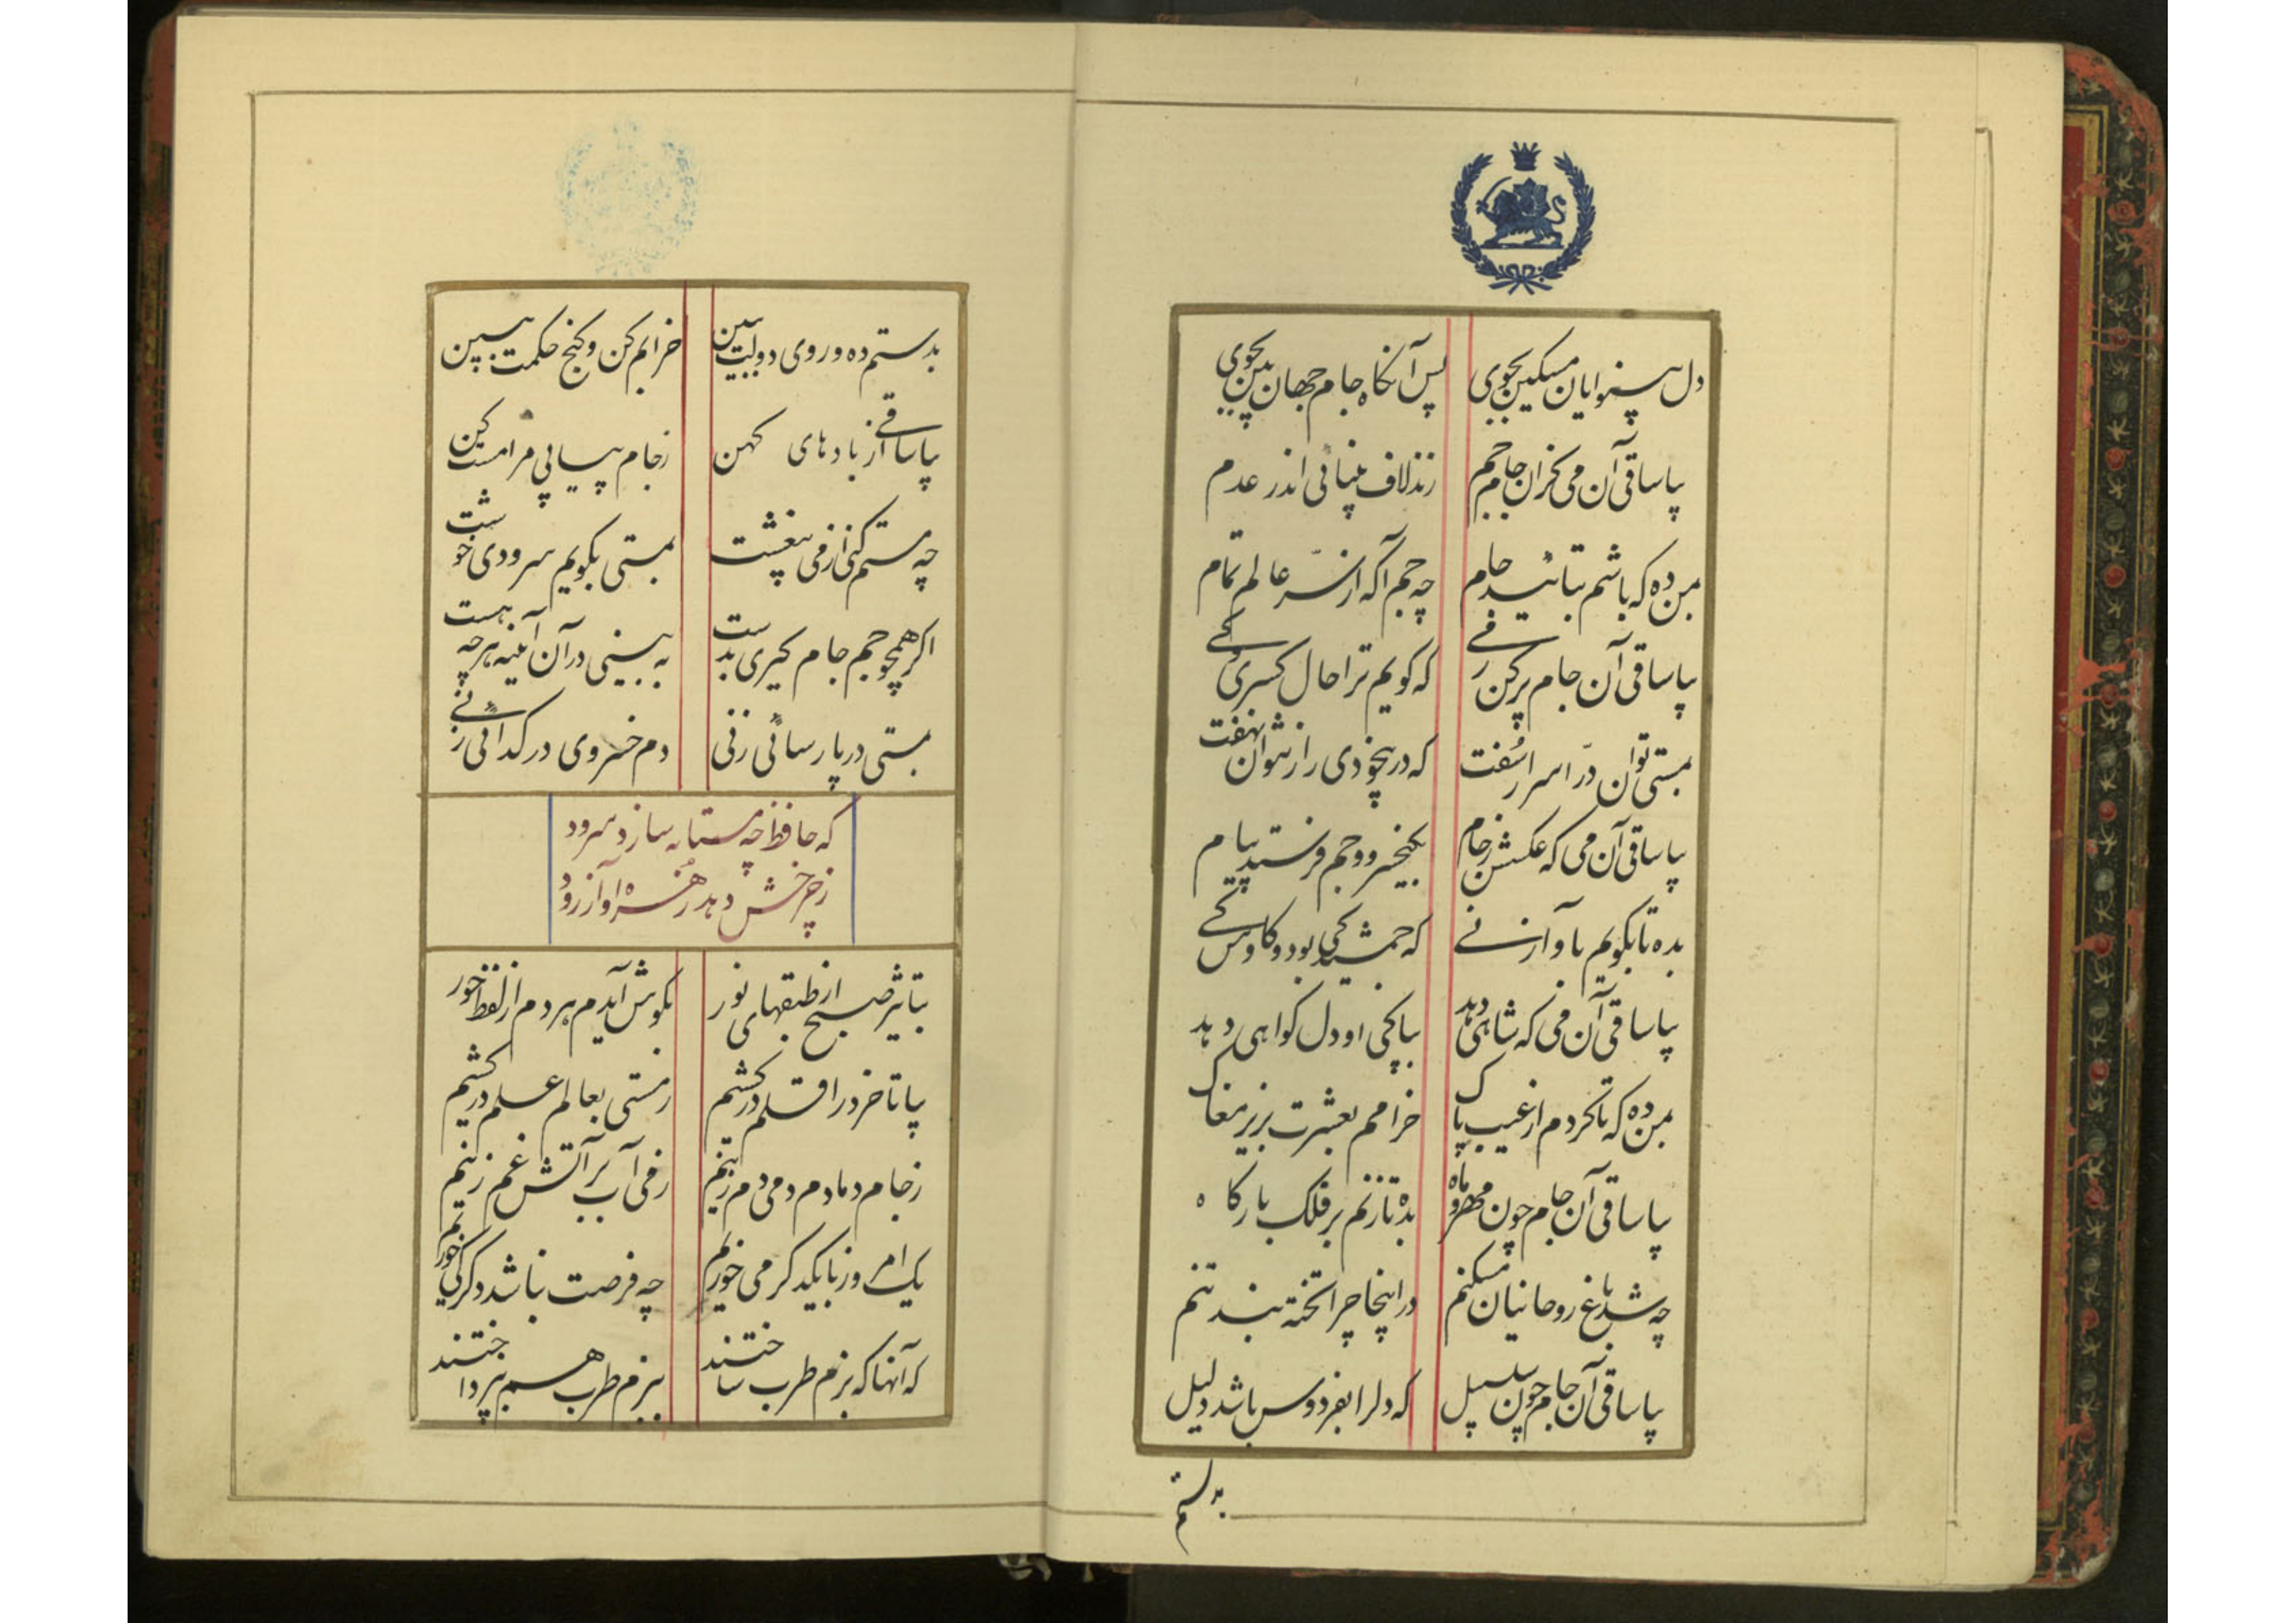 دل بینوایان مسکین بجوی پس آنگاه جام جهان بین بجوی
بیا ساقی آن می کزان جام جم زند لاف بینائی اندر عدم
بمن ده که باشم بتائید جام چه جم آگه از سرّ عالم تمام
بیا ساقی آن جام پر کن ز می که گویم ترا حال کسری و کی
بمستی توان درّ اسرار سُفت که در بیخودی راز نتوان نهفت
بیا ساقی آن می که عکسش ز جام بکیخسرو و جم فرستد پیام
بده تا بگویم بآواز نی که جمشید کی بود و کاوس کی
بیا ساقی آن می که شاهی دهد بپاکی او دل گواهی دهد
بمن ده که تا کردم از عیب پاک خرامم بعشرت
بیا ساقی آن جام چون مهر و ماه بده تا زنم بر فلک بارگاه
چه شد باغ روحانیان مسکنم در اینجا چرا تخته بند تنم
بیا ساقی آن جام چون سلسبیل که دلرا بفردوس باشد دلیل
بدستم
بدستم ده و روی دولت ببین خرابم کن و گنج حکمت ببین
بیا ساقی از بادهای کهن ز جام پیاپی مرا مست کن
چه مستم کنی از می بیغشت بمستی بگویم سرودی خوشت
اگر همچو جم جام گیری بدست به بینی در آن آینه هر چه هست
بمستی در پارسائی زنی دم خسروی در گدائی زنی
که حافظ چه مستانه سازد سرود
ز چرخش دهد زهره آواز رود
بتاثیر صبح از طبقهای نور بگوش آیدم هر دم از لفظ حور
بیا تا خرد را قلم در کشیم ز مستی بعالم علم در کشیم
ز جام دمادم دمی دم زنیم ز می آب بر آتش غم زنیم
یک امروز با یکدگر می خوریم چه فرصت نباشد دگر کی خوریم
که آنها که بزم طرب ساختند ببزم طرب هم نپرداختند